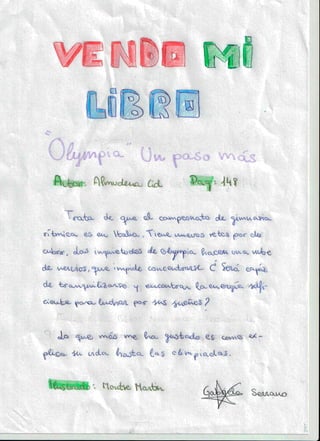 VENDO MI
LIBRO
"Olympia" Un paso más
Autor: Almudena Cid Pag: 148
Trata de que el campeonato de gimnasia
rítmica es en Italia. Tiene nuevos retos por de
cubrir, las inquietudes de Olympia hacen una nube
de nervios, que impide concentrarse ¿ Será capaz
de tranquilizarse y encontrar la energia sufi-
ciente para luchar por sus sueños?
Lo que más me ha gustado es como ex-
plica su vida hasta las olimpiadas.
Ilustrado: Montse Martin
Gabriela Serrano